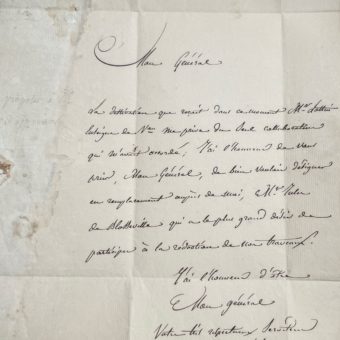 Mon Général
La destination que reçoit dans ce moment Mr
de Vous me prive du seul collaborateur
qui m'avait accordé; J'ai l'honneur de vous
prier, Mon Général, de bien vouloir désigner
en remplacement auprès de moi, Mr Jules
de Blosseville qui a le plus grand désir de
participer à la rédaction de mon travaux.
J'ai l'honneur d'être
Mon général
Votre très respectueux Serviteur